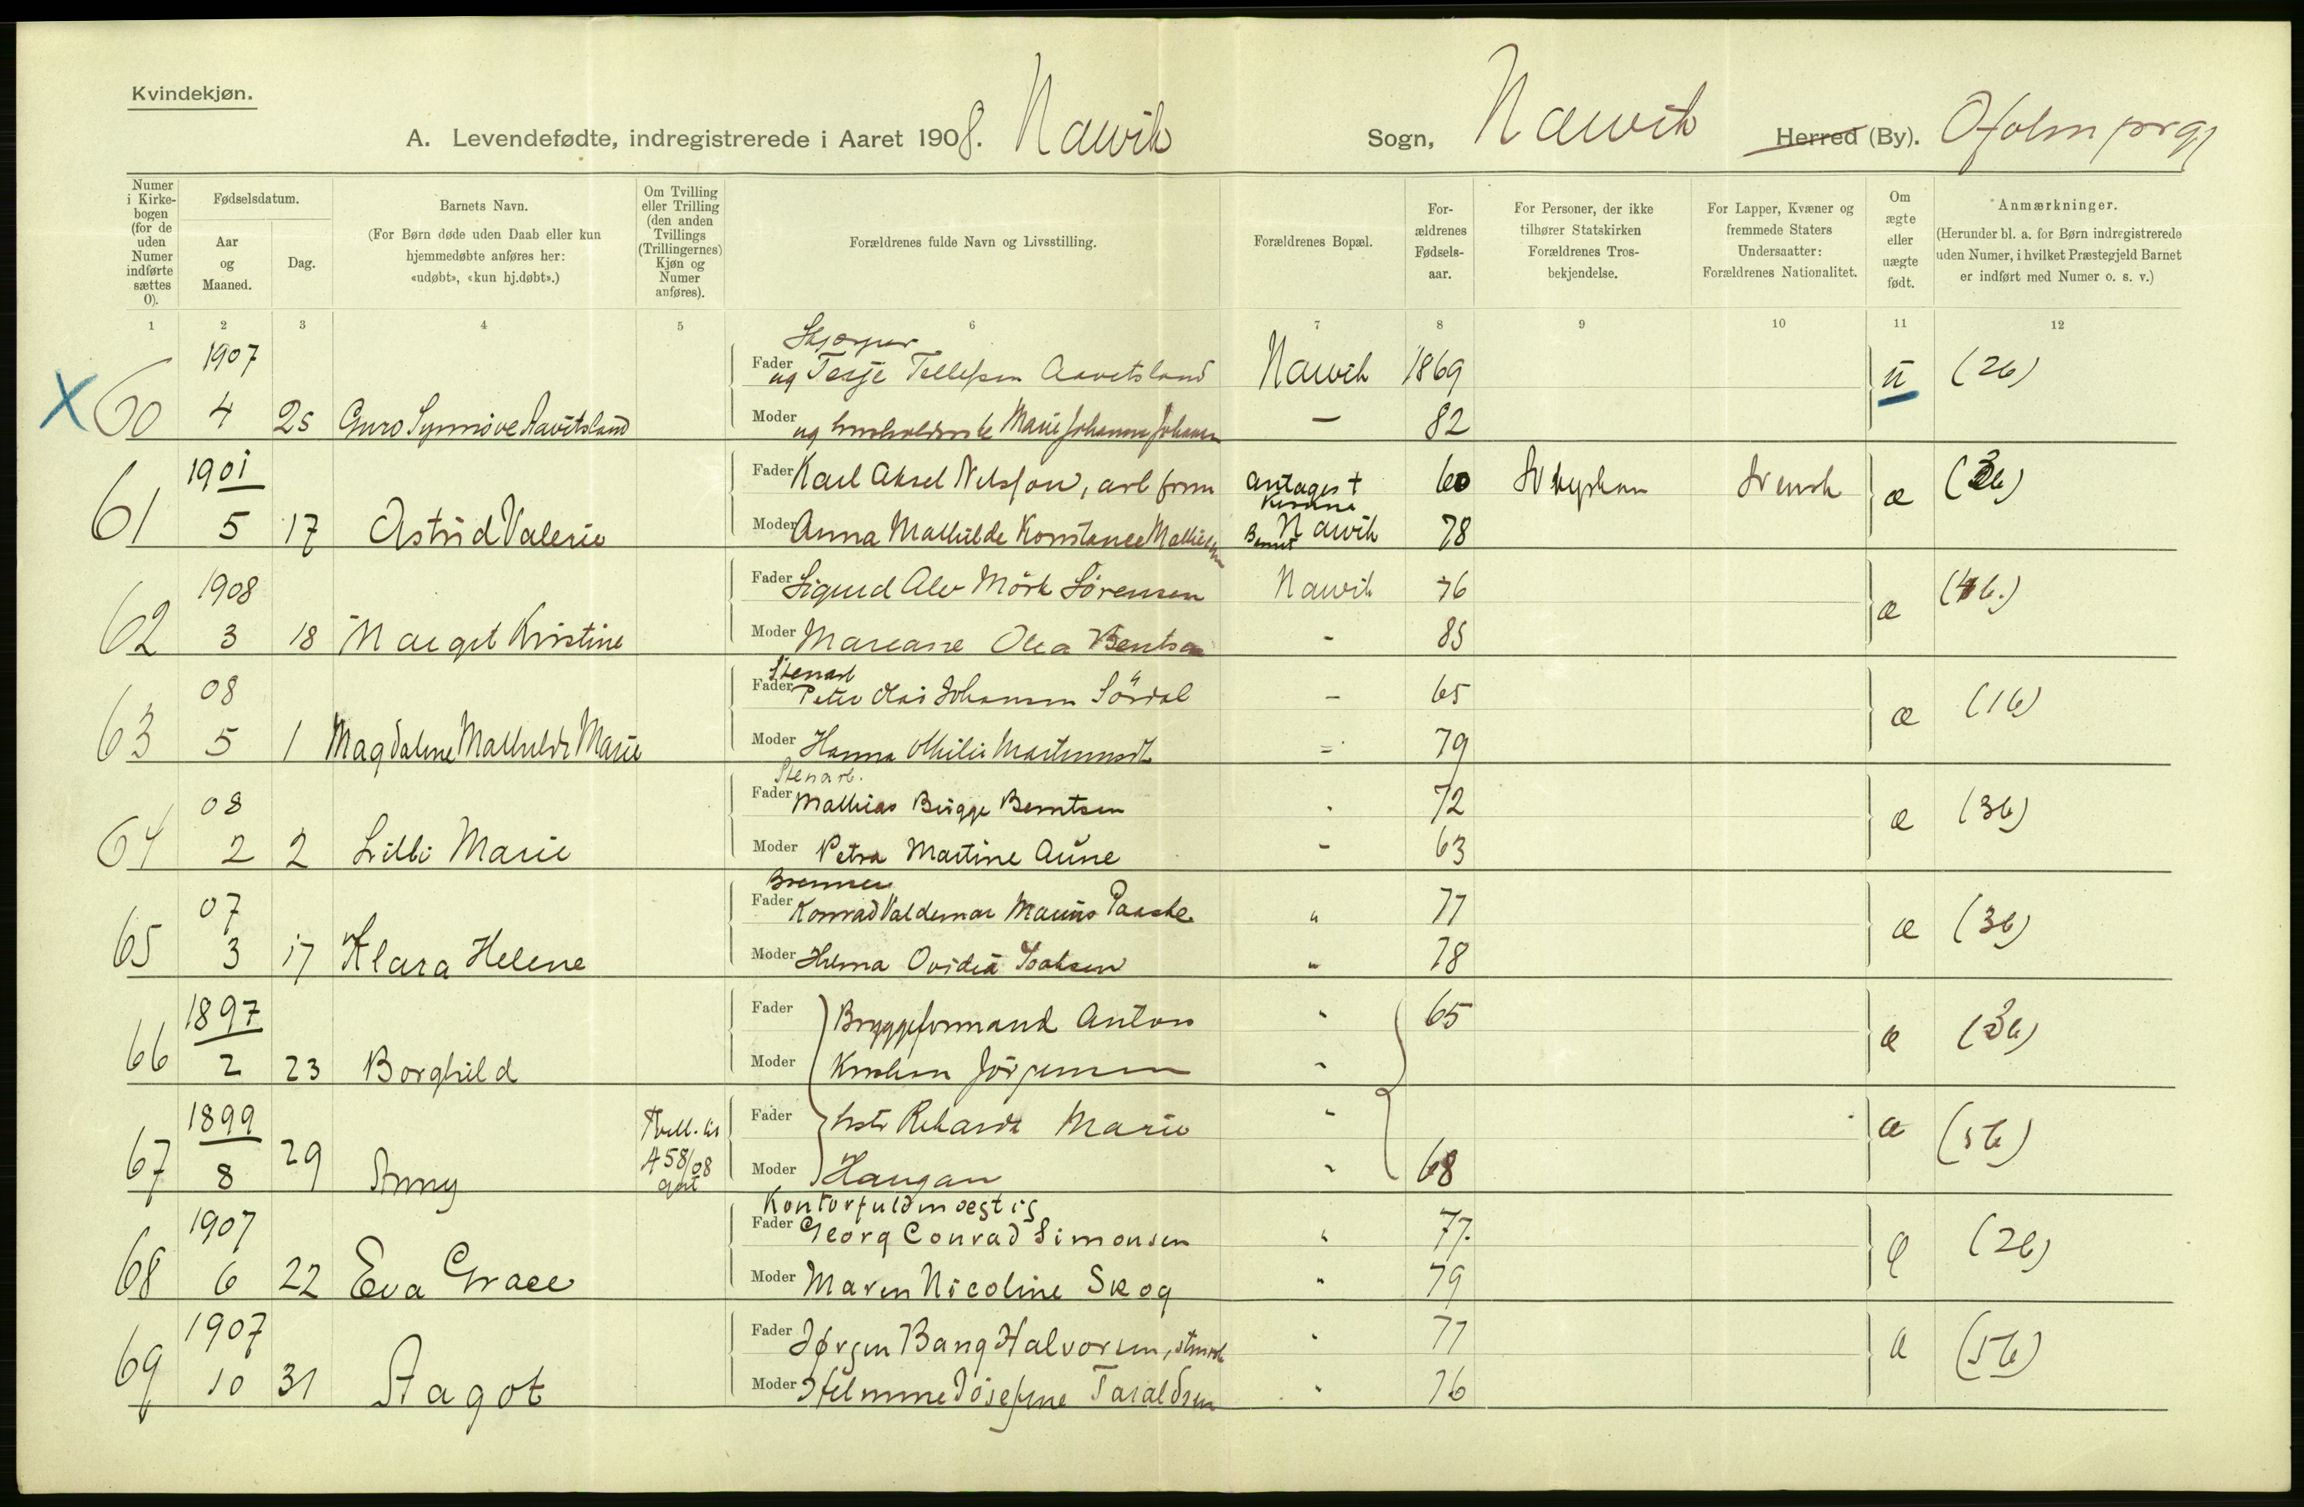 Kvindekjøn.
A. Levendefødte, indregistrerede i Aaret 1908. Narvik Sogn, Narvik Herred (By). Ofoten prgj
Numer i Kirkebogen (for de uden Numer indførte sættes 0).
Fødselsdatum.
Aar og Maaned.
Dag.
Barnets Navn.
(For Børn døde uden Daab eller kun hjemmedøbte anføres her: «udøbt», «kun hj.døbt».)
Om Tvilling eller Trilling (den anden Tvillings (Trillingernes) Kjøn og Numer anføres).
Forældrenes fulde Navn og Livsstilling.
Forældrenes Bopæl.
Forældrenes Fødselsaar.
For Personer, der ikke tilhører Statskirken Forældrenes Trosbekjendelse.
For Lapper, Kvæner og fremmede Staters Undersaatter: Forældrenes Nationalitet.
Om ægte eller uægte født.
Anmærkninger.
(Herunder bl. a. for Børn indregistrerede uden Numer, i hvilket Præstegjeld Barnet er indført med Numer o. s. v.)
1 2 3 4 5 6 7 8 9 10 11 12
X 60 1907 4 25 Guro Synnøve Aavitsland
Fader ug Terje Tellefsen Aavitsland Narvik 1869 u (26)
Moder ug husholderske Marie Johanne Johans — 82
61 1901 5 17 Astrid Valerie
Fader Karl Aksel Nelsson, arb form antages + 60 Svensk æ
Moder Anna Mathilde Konstance Mathis Barnet Narvik 78
62 1908 3 18 Margit Kristine
Fader Sigurd Alv Mörk Sörensen Narvik 76 æ (46.)
Moder Mareane Olea Bentsen - 85
63 08 5 1 Magdalene Mathilde Marie
Stenarb
Fader Peter Olai Johansen Sördal — 65 æ (16)
Moder Hanna 79
64 08 2 2 Lilli Marie
Stenarb.
Fader Mathias Brigge Berntsen 72 æ (36)
Moder Petra Martine Aune - 63
65 07 3 17 Klara Helene
Bremser
Fader Konrad Valdemar Marius Paaske " 77 æ (36)
Moder Hilma Ovidia Isaksen " 78
66 1897 2 23 Borghild
Fader Bryggeformand Anton " 65 æ (36)
Moder Kristian Jörgensen "
67 1899 8 29 Anny
Tvill. A 58/08 gut
Fader Rikarda Marie " æ (56)
Moder Haugan " 68
68 1907 6 22 Eva Grace
Kontorfuldmægtig
Fader Georg Conrad Simonsen " 77. (26)
Moder Maren Nicoline Skog " 79
69 1907 10 31 Aagot
Fader Jørgen Bang Halvorsen, stenarb " 77 æ (56)
Moder Josefine Taraldsen " 76